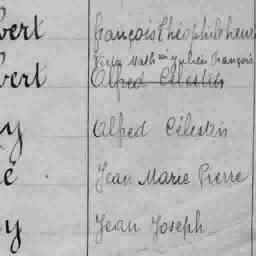 bert François Théophile Henri
Julien François
bert Alfred Célestin
y Alfred Célestin
e Jean Marie Pierre
y Jean Joseph